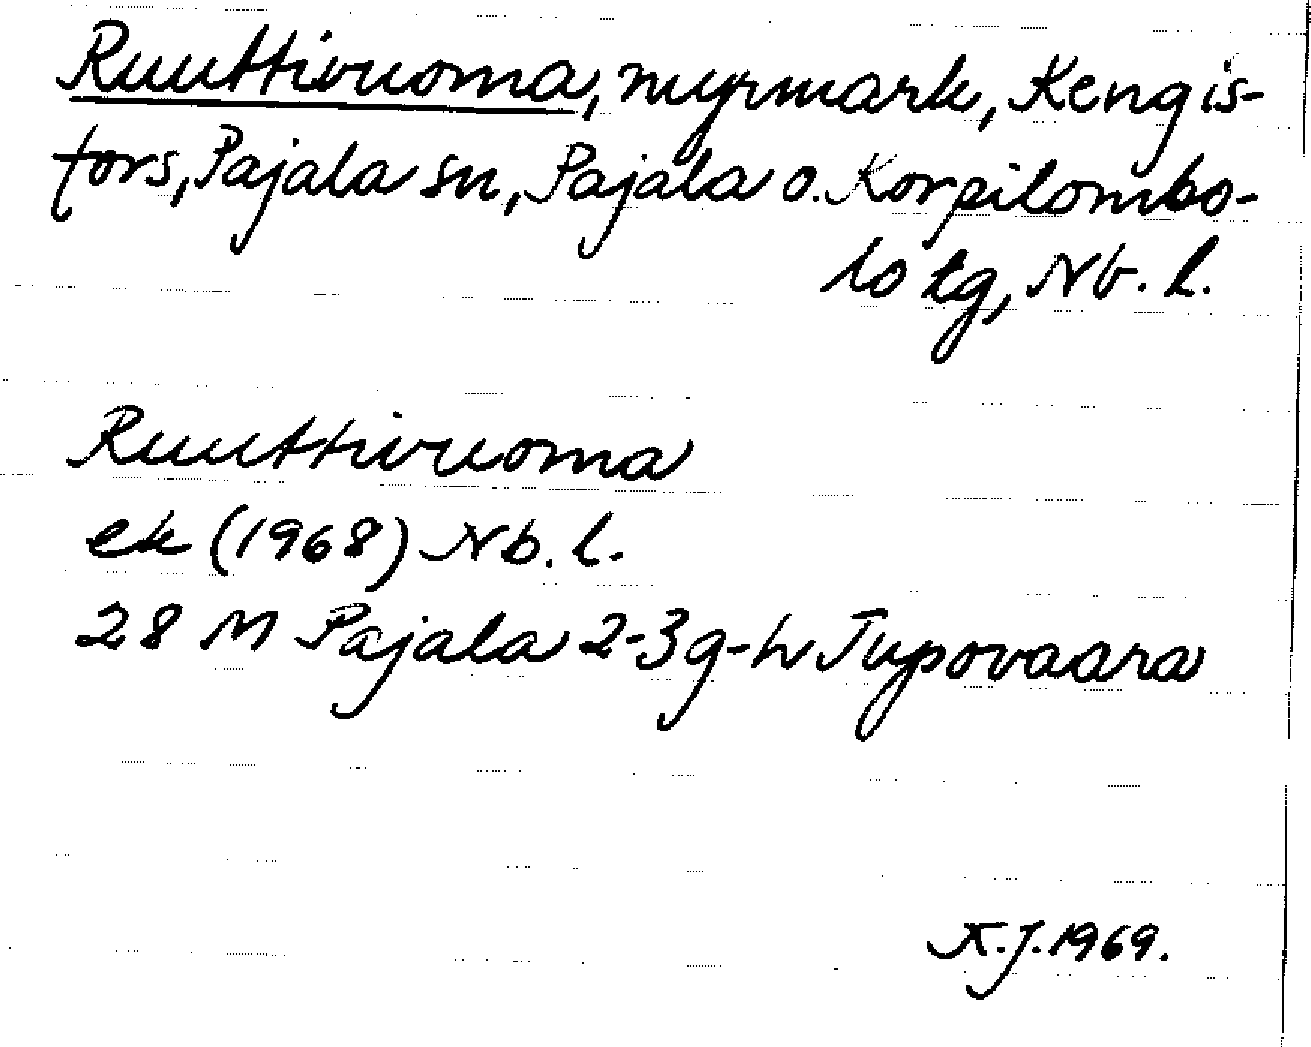 Ruuttivuoma, myrmark, Kengis-
fors, Pajala sn, Pajala o. Korpilombo-
lo tg, Nb. l.
Ruuttivuoma
ek (1968) Nb. l.
28 M Pajala 2-3g-h Tupovaara
K.J. 1969.